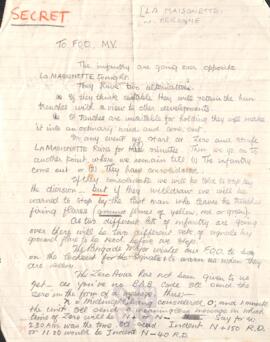 SECRET
LA MAISONETTE
PERONNE
To F.O.O. M.V.
The infantry are going over opposite
LA MAISONETTE tonight.
They have two alternatives.
If they think suitable they will retain the hun
trenches with a view to other developments
If trenches are unsuitable for holding they will make
it into an ordinary raid and come out.
In any event we start at Zero and strafe
LA MAISONETTE for minutes. Then we go on to
another point where we remain till (1) The infantry
come out or (2) They have consolidated.
If they consolidate we will be told to stop by
the division — but if they withdraw we will be
warned to stop by the last man who leaves the trenches
firing flares of yellow, red or green.
As two different lots of infantry are going
over there will be two different sets of signals by
ground flare to be used before we stop.
The Brigade Major wants our F.O.O. to be
on the lookout for the signals & to warn us when they
are seen.
The Zero Hour has not been given to us
yet — as you've no B.A.B. code we'll send the
zero in the form of a message thus —
N = Midnight being considered 0, and minutes
we'll send a message in which
time of Zero will be N. Say for
2.30 A.M. was the time we'd send Indent N + 150 R.D.
or 11.20 would be Indent N − 40 R.D.